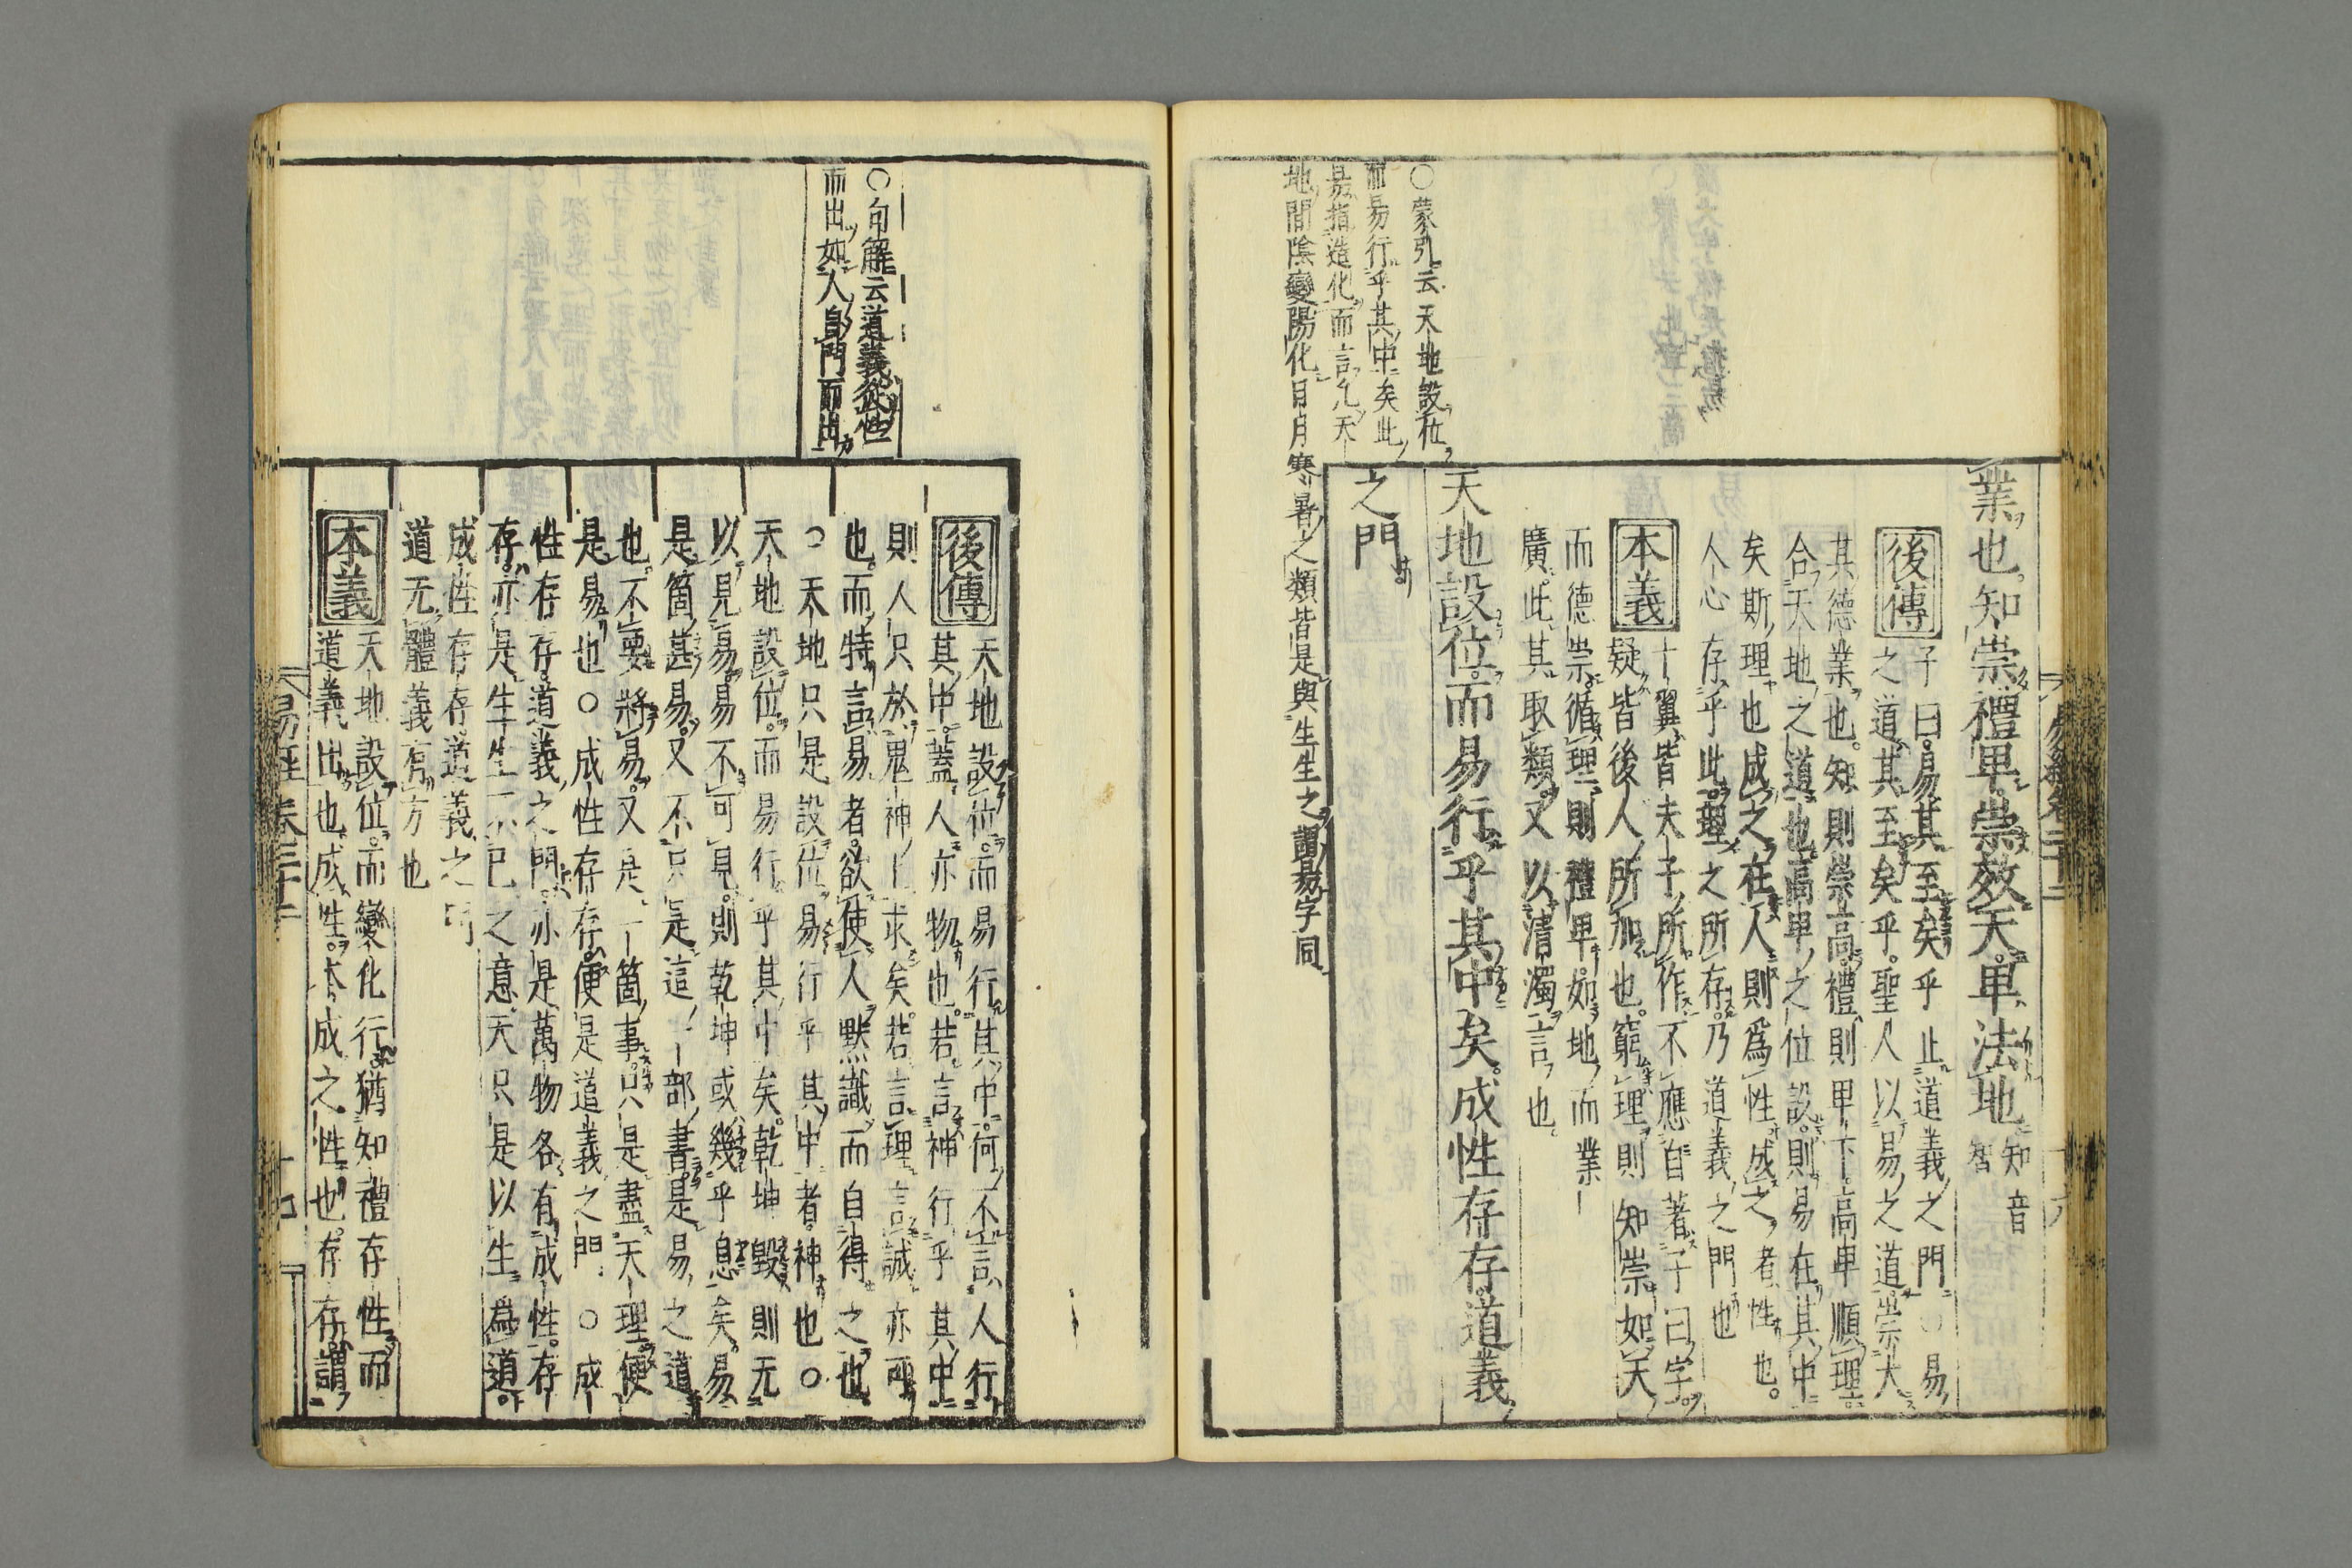 業也知崇禮卑崇效天卑法地知音智
後傳
子曰易其至矣乎止道義之門○易
之道其至矣乎聖人以易之道崇大
其德業也知則崇高禮則卑下高卑順理
合天地之道也高卑之位設則易在其中
矣斯理也成之在人則爲性成之者性也
人心存乎此理之所存乃道義之門也
本義
十翼皆夫子所作不應自著子曰字
疑皆後人所加也窮理則知崇如天
而德崇循理則禮卑如地而業
廣此其取類又以清濁言也
天地設位而易行乎其中矣成性存存道義
之門
○蒙引云天地設位
而易行乎其中矣此
易指造化而言凡天
地間陰變陽化日月寒暑之類皆是與生生之謂易字同
後傳
天地設位而易行其中何不言人行
其中蓋人亦物也若言神行乎其中
則人只於鬼神上求矣若言理言誠亦可
也而特言易者欲使人黙識而自得之也
○天地只是設位易行乎其中者神也○
天地設位而易行乎其中矣乾坤毀則无
以見易易不可見則乾坤或幾乎息矣易
是箇甚易又不只是這一部書是易之道
也不要將易又是一箇事只是盡天理便
是易也○成性存存便是道義之門○成
性存存道義之門亦是萬物各有成性存
存亦是生生不已之意天只是以生爲道
成性存存道義之門
道无體義有方也
本義
天地設位而變化行猶知禮存性而
道義出也成性本成之性也存存謂
○句解云道義從性
而出如人身門而出
易經卷二十二